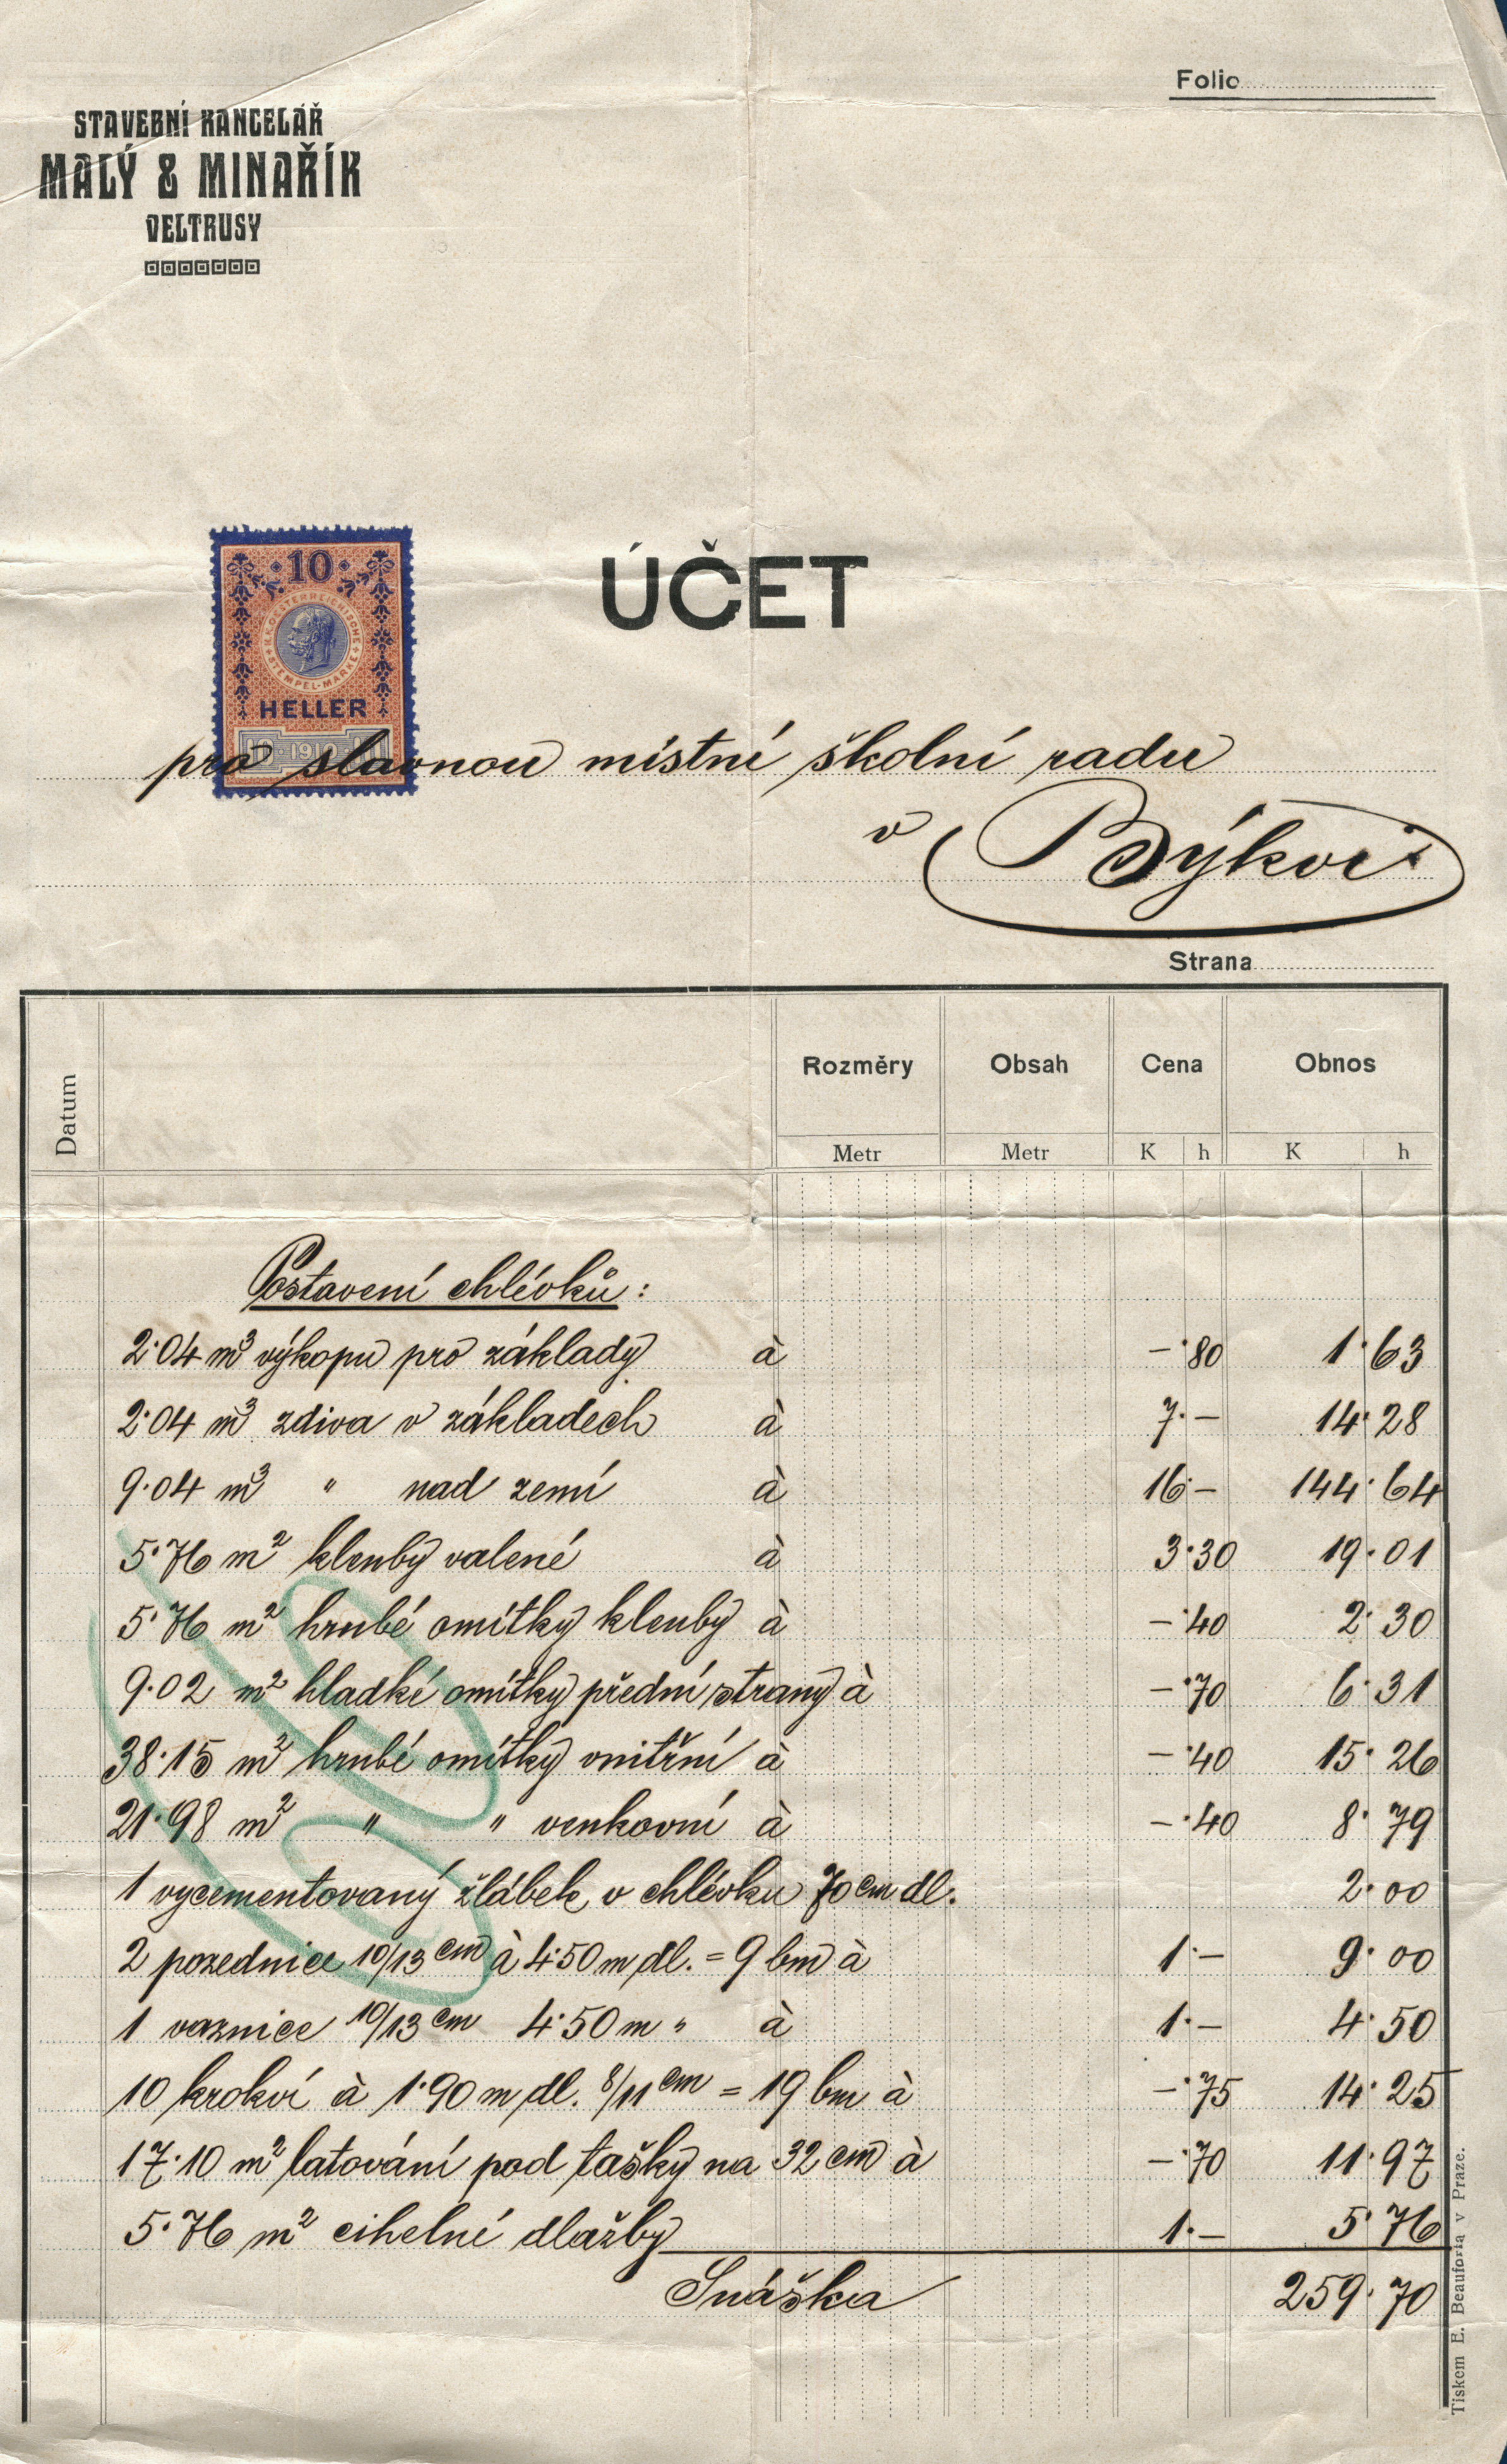 Folio
STAVEBNÍ KANCELÁŘ
MALÝ & MINAŘÍK
VELTRUSY
ÚČET
10
K.K. OESTERREICHISCHE
STEMPEL-MARKE
HELLER
1910
pro slavnou místní školní radu
v Býkvi
Strana
Datum Rozměry Obsah Cena Obnos
Metr Metr K h K h
Postavení chlévků:
2·04 m³ výkopu pro základy à -·80 1·63
2·04 m³ zdiva v základech à 7·- 14·28
9·04 m³ " nad zemí à 16·- 144·64
5·76 m² klenby valené à 3·30 19·01
5·76 m² hrubé omítky klenby à -·40 2·30
9·02 m² hladké omítky přední strany à -·70 6·31
38·15 m² hrubé omítky vnitřní à -·40 15·26
21·98 m² " " venkovní à -·40 8·79
1 vycementovaný žlábek v chlévku 70 cm dl. 2·00
2 pozednice 10/13 cm à 4·50 m dl. = 9 bm à 1·- 9·00
1 vaznice 10/13 cm 4·50 m " à 1·- 4·50
10 krokví à 1·90 m dl. 8/11 cm = 19 bm à -·75 14·25
17·10 m² latování pod tašky na 32 cm à -·70 11·97
5·76 m² cihelné dlažby 1·- 5·76
Snáška 259·70
Tiskem E. Beauforta v Praze.